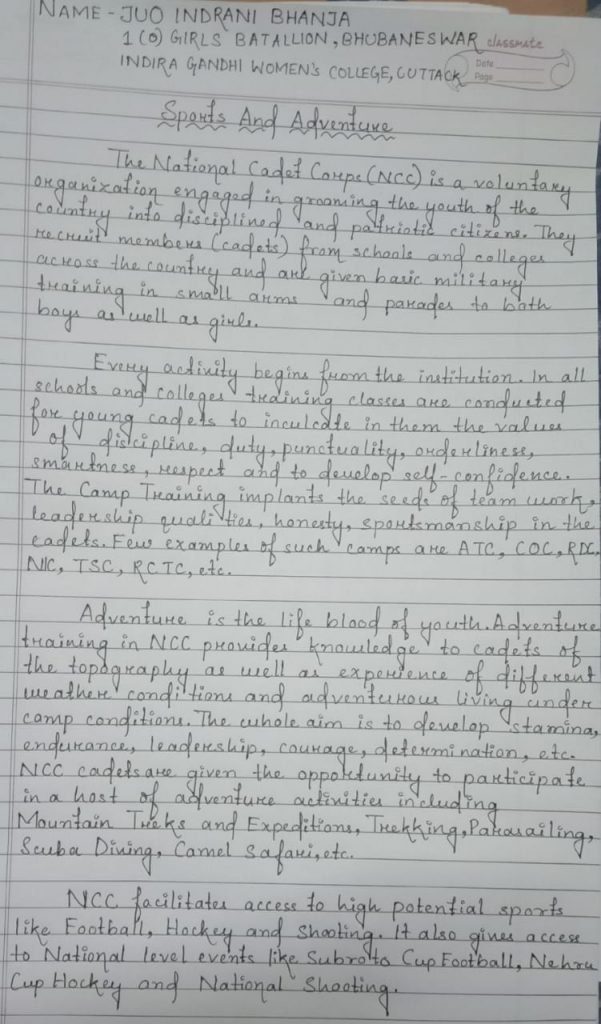 NAME - JUO INDRANI BHANJA
1 (O) GIRLS BATALLION, BHUBANESWAR
classmate
Date
INDIRA GANDHI WOMEN'S COLLEGE, CUTTACK
Page
Sports And Adventure
The National Cadet Corps (NCC) is a voluntary
organization engaged in grooming the youth of the
country into disciplined and patriotic citizens. They
recruit members (cadets) from schools and colleges
across the country and are given basic military
training in small arms and parades to both
boys as well as girls.
Every activity begins from the institution. In all
schools and colleges training classes are conducted
for young cadets to inculcate in them the values
of discipline, duty, punctuality, orderliness,
smartness, respect and to develop self-confidence.
The Camp Training implants the seeds of team work,
leadership qualities, honesty, sportsmanship in the
cadets. Few examples of such camps are ATC, COC, RDC,
NIC, TSC, RCTC, etc.
Adventure is the life blood of youth. Adventure
training in NCC provides knowledge to cadets of
the topography as well as experience of different
weather conditions and adventurous living under
camp conditions. The whole aim is to develop stamina,
endurance, leadership, courage, determination, etc.
NCC cadets are given the opportunity to participate
in a host of adventure activities including
Mountain Treks and Expeditions, Trekking, Parasailing,
Scuba Diving, Camel Safari, etc.
NCC facilitates access to high potential sports
like Football, Hockey and Shooting. It also gives access
to National level events like Subroto Cup Football, Nehru
Cup Hockey and National Shooting.